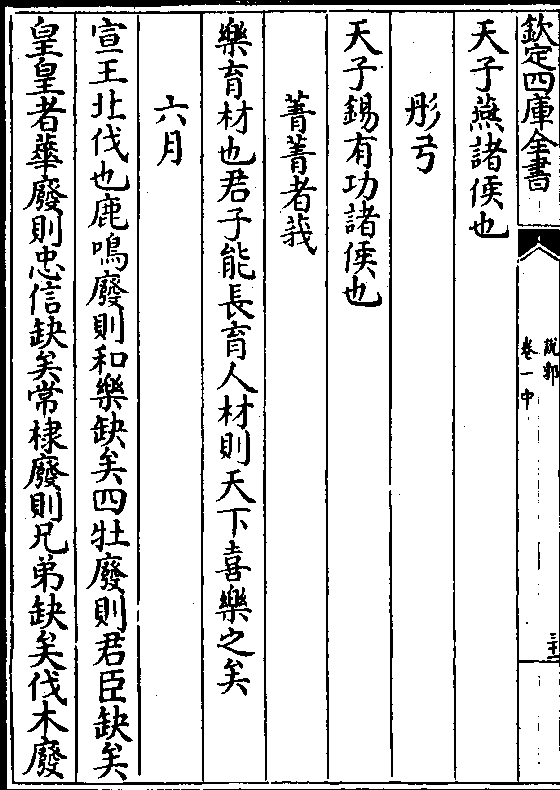 欽定四庫全書
說郛
卷一中
三十二
天子燕諸侯也
彤弓
天子錫有功諸侯也
菁菁者莪
樂育材也君子能長育人材則天下喜樂之矣
六月
宣王北伐也鹿鳴廢則和樂缺矣四牡廢則君臣缺矣
皇皇者華廢則忠信缺矣常棣廢則兄弟缺矣伐木廢